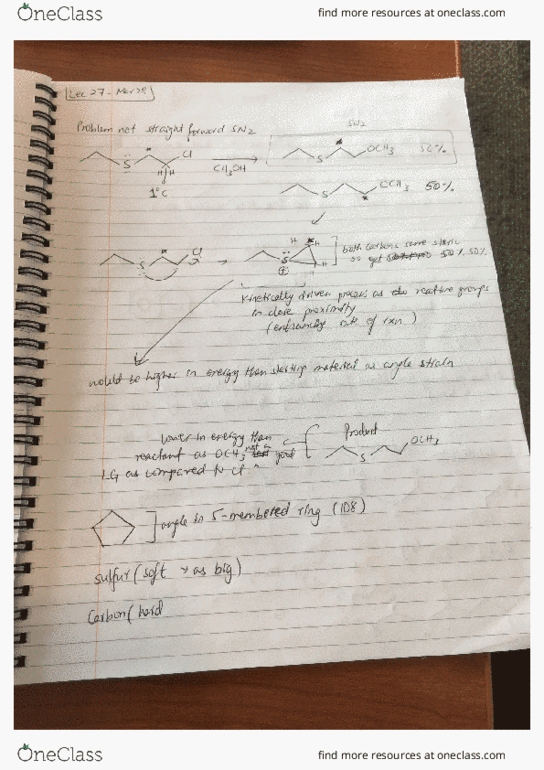 OneClass
find more resources at oneclass.com
Lec 27 - Nov 28
Problem not straight forward SN2
SN2
S
Cl
H H
1°C
CH3OH
S
OCH3 50%
S
OCH3 50%
S
Cl
S
H H
H
both carbons same steric
so get 50% 50%
kinetically driven process as the reactive groups
in close proximity
(enhancing rate of rxn)
would be higher in energy than starting material as angle strain
lower in energy than
reactant as OCH3 not a good
LG as compared to Cl-
Product
S
OCH3
angle in 5-membered ring (108)
sulfur (soft → as big)
Carbon (hard
OneClass
find more resources at oneclass.com